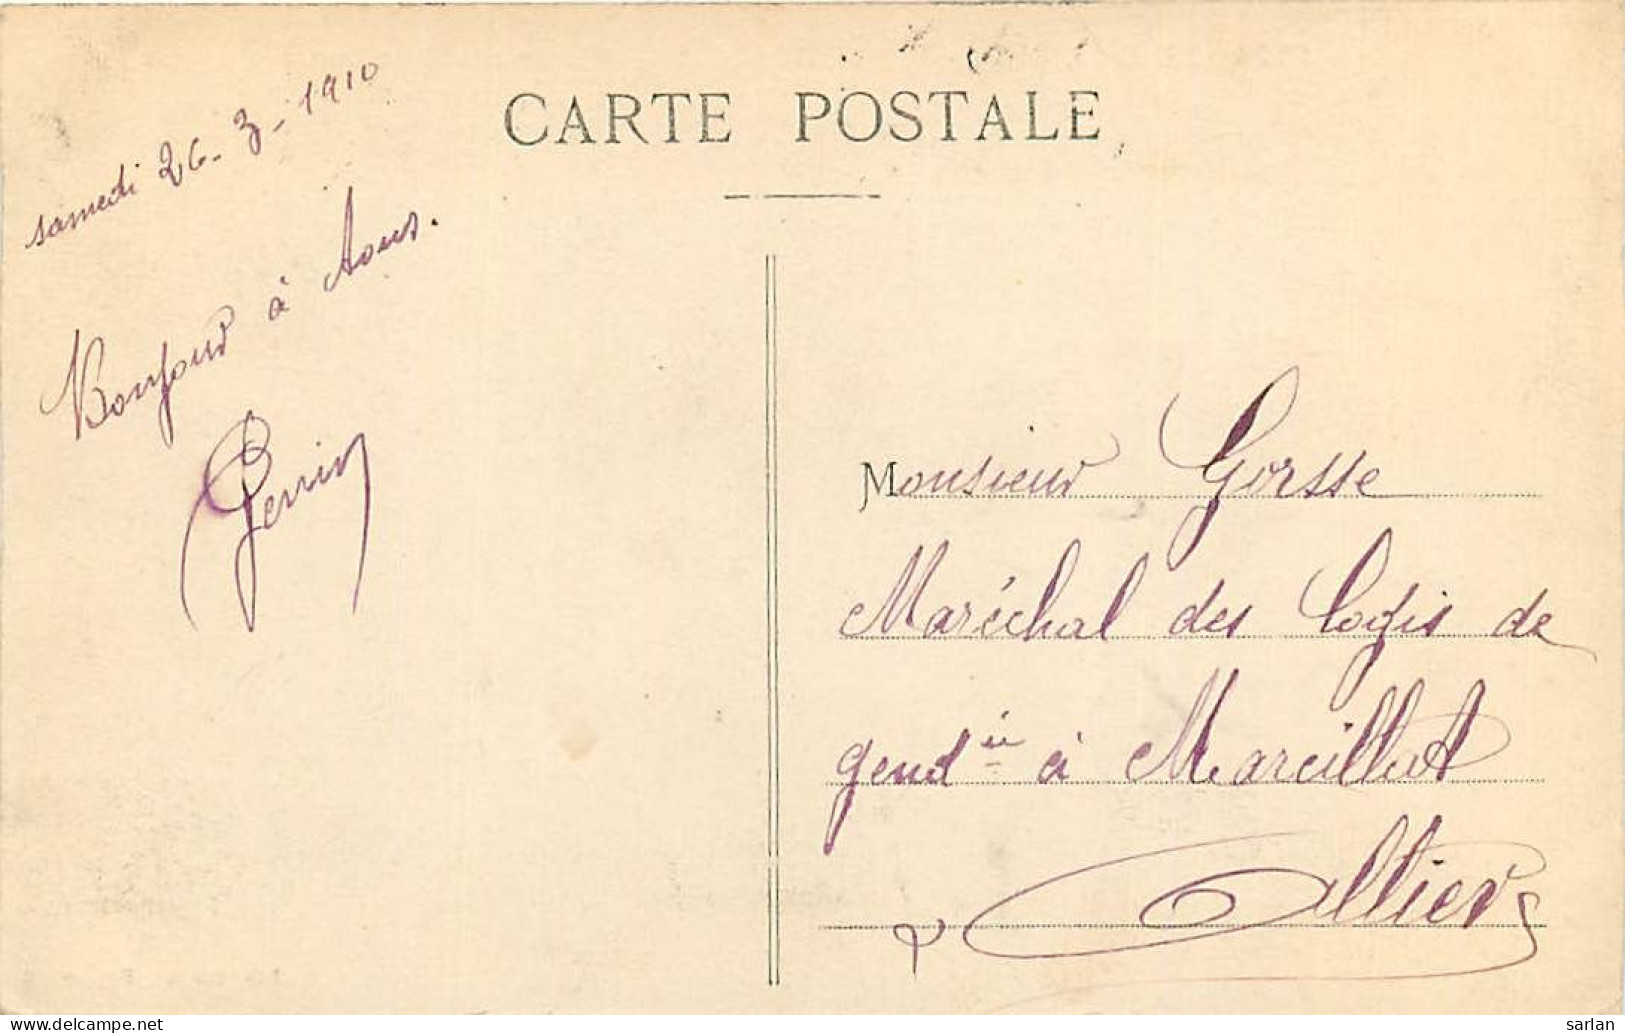 CARTE POSTALE
samedi 26-3-1910
Bonjour à tous.
Monsieur Gorsse
Maréchal des logis de
gend<sup>ie</sup> à Marcillat
Allier
delcampe.net
sarlan